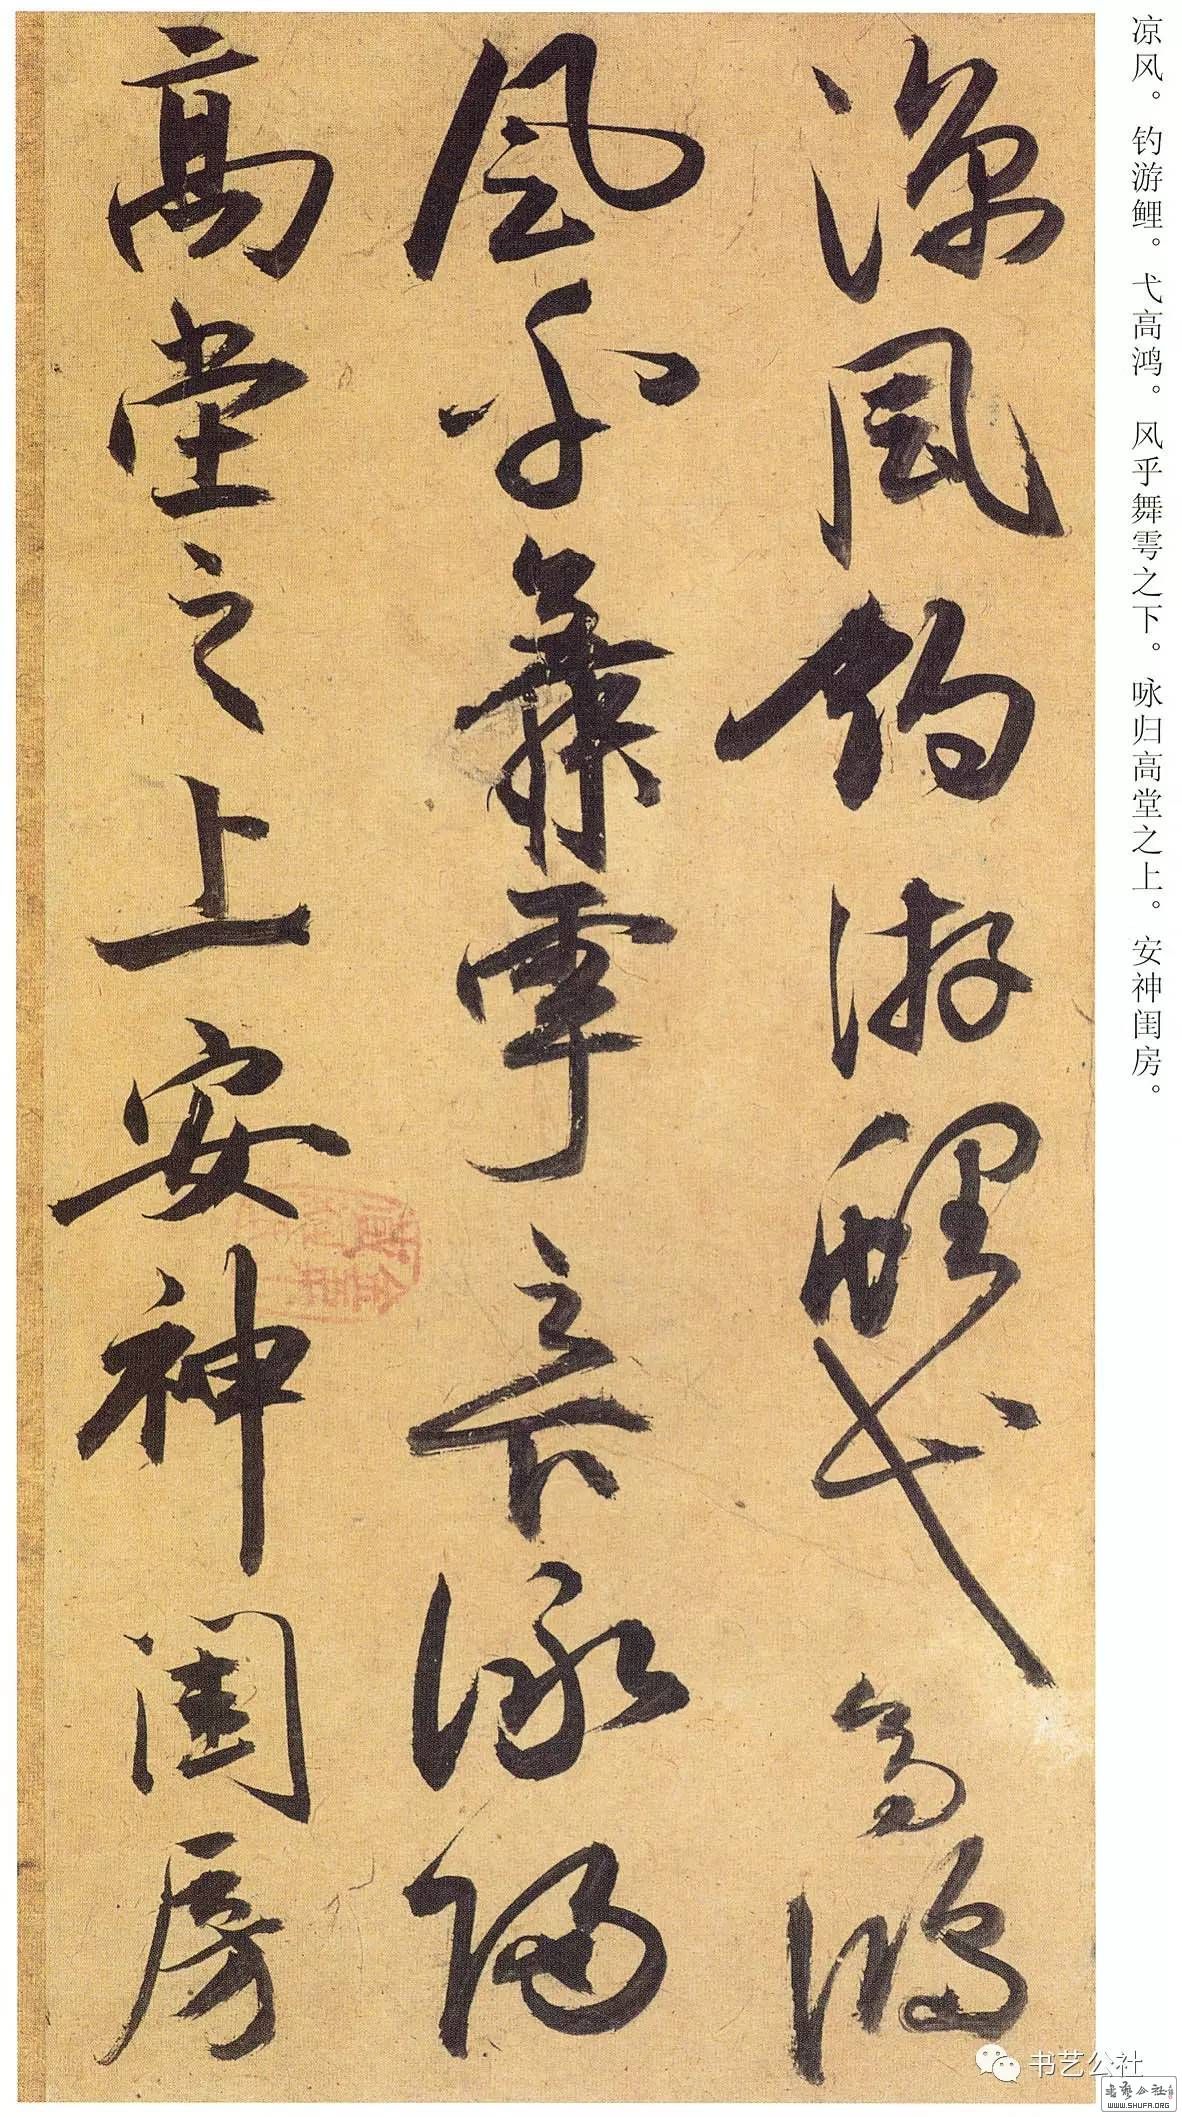 凉风。钓游鲤。弋高鸿。风乎舞雩之下。咏归高堂之上。安神闺房。
凉风钓游鲤弋高鸿
风乎舞雩之下咏归
高堂之上安神闺房
书艺公社
书艺公社
WWW.SHUFA.ORG